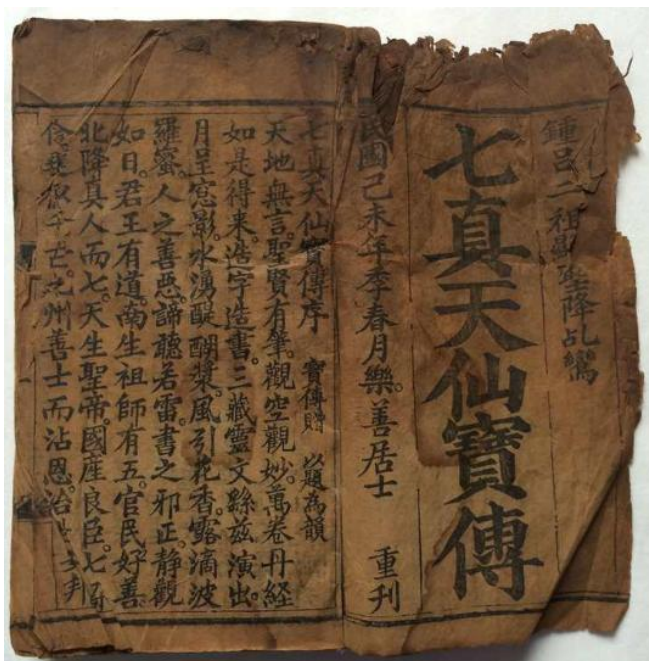 鍾呂二祖顯聖降乩鸞
七真天仙寶傳
民國己未年季春月樂善居士 重刊
七真天仙寶傳序 寶傳贈 以題為韻
天地無言。聖賢有筆。觀空觀妙。萬卷丹経
如是得来。造字造書。三藏靈文。綵兹演出。
月呈窓影。水湧醍醐漿。風引花香。露滴波
羅蜜。人之善惡。諦聽若雷。書之邪正。静觀
如日。君王有道。南生祖師有五。官民好善。
北降真人而七。天生聖帝。國産良臣。七
州善士而沾恩。治